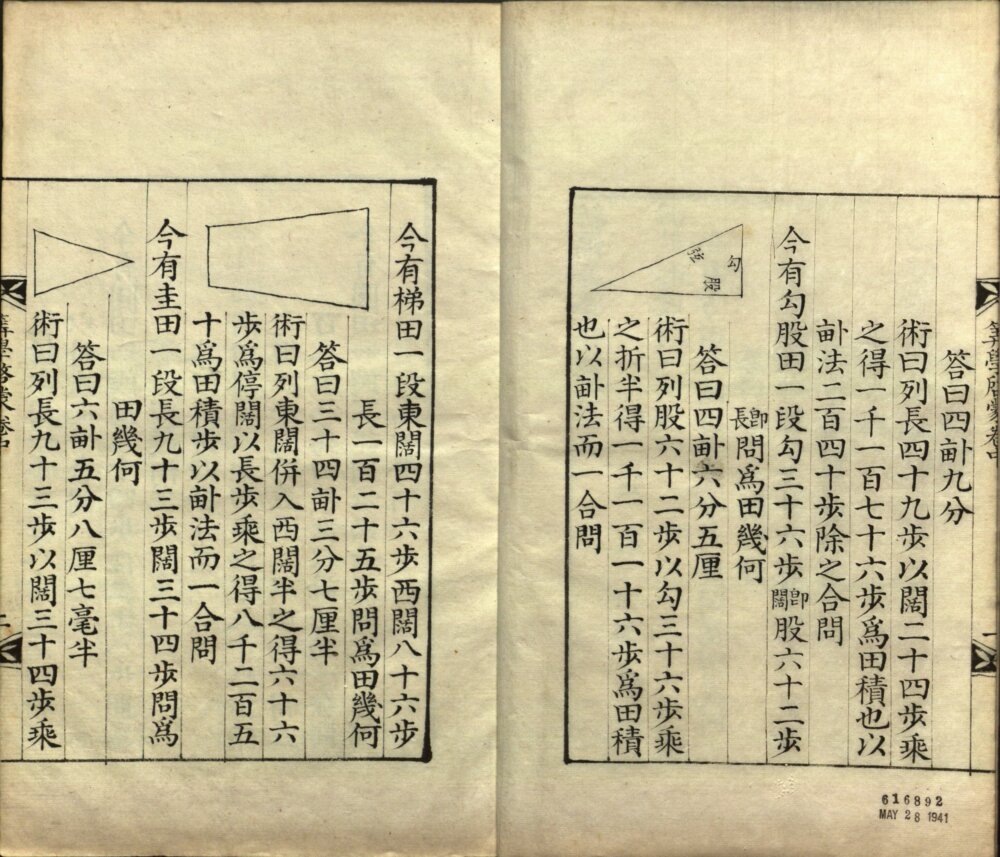 算學啓蒙卷中
一
答曰四畝九分
術曰列長四十九步以闊二十四步乘
之得一千一百七十六步為田積也以
畝法二百四十步除之合問
今有勾股田一段勾三十六步即闊股六十二步
即長問為田幾何
勾
股
弦
答曰四畝六分五厘
術曰列股六十二步以勾三十六步乘
之折半得一千一百一十六步為田積
也以畝法而一合問
616892
MAY 28 1941
今有梯田一段東闊四十六步西闊八十六步
長一百二十五步問爲田幾何
答曰三十四畝三分七厘半
術曰列東闊併入西闊半之得六十六
步爲停闊以長步乘之得八千二百五
十爲田積步以畝法而一合問
今有圭田一段長九十三步闊三十四步問爲
田幾何
答曰六畝五分八厘七毫半
術曰列長九十三步以闊三十四步乘
算學啓蒙卷中
二